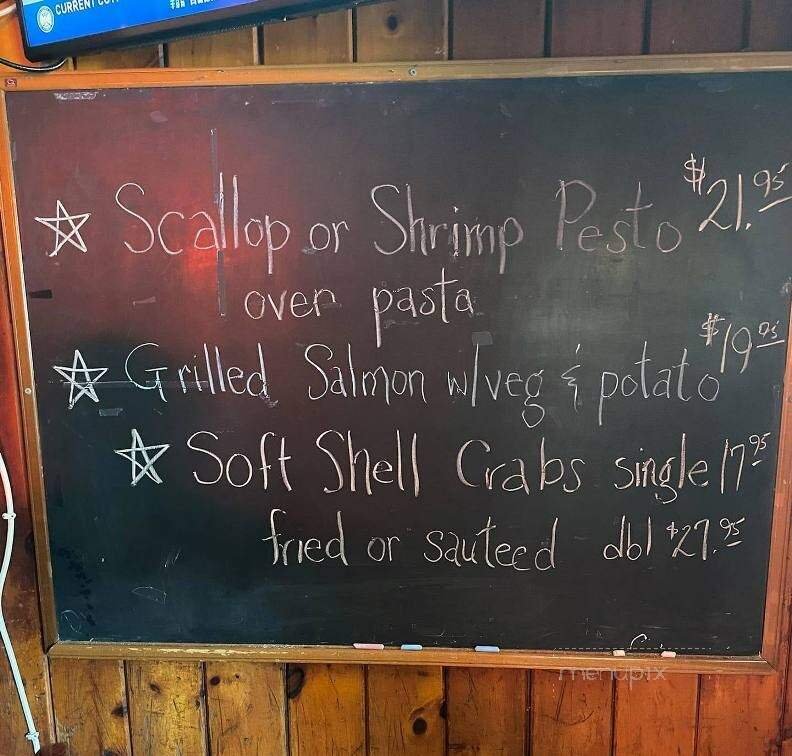 CURRENT
☆ Scallop or Shrimp Pesto $21.95
over pasta
☆ Grilled Salmon w/veg & potato $19.95
☆ Soft Shell Crabs single 17.95
fried or sauteed dbl $27.95
menupix